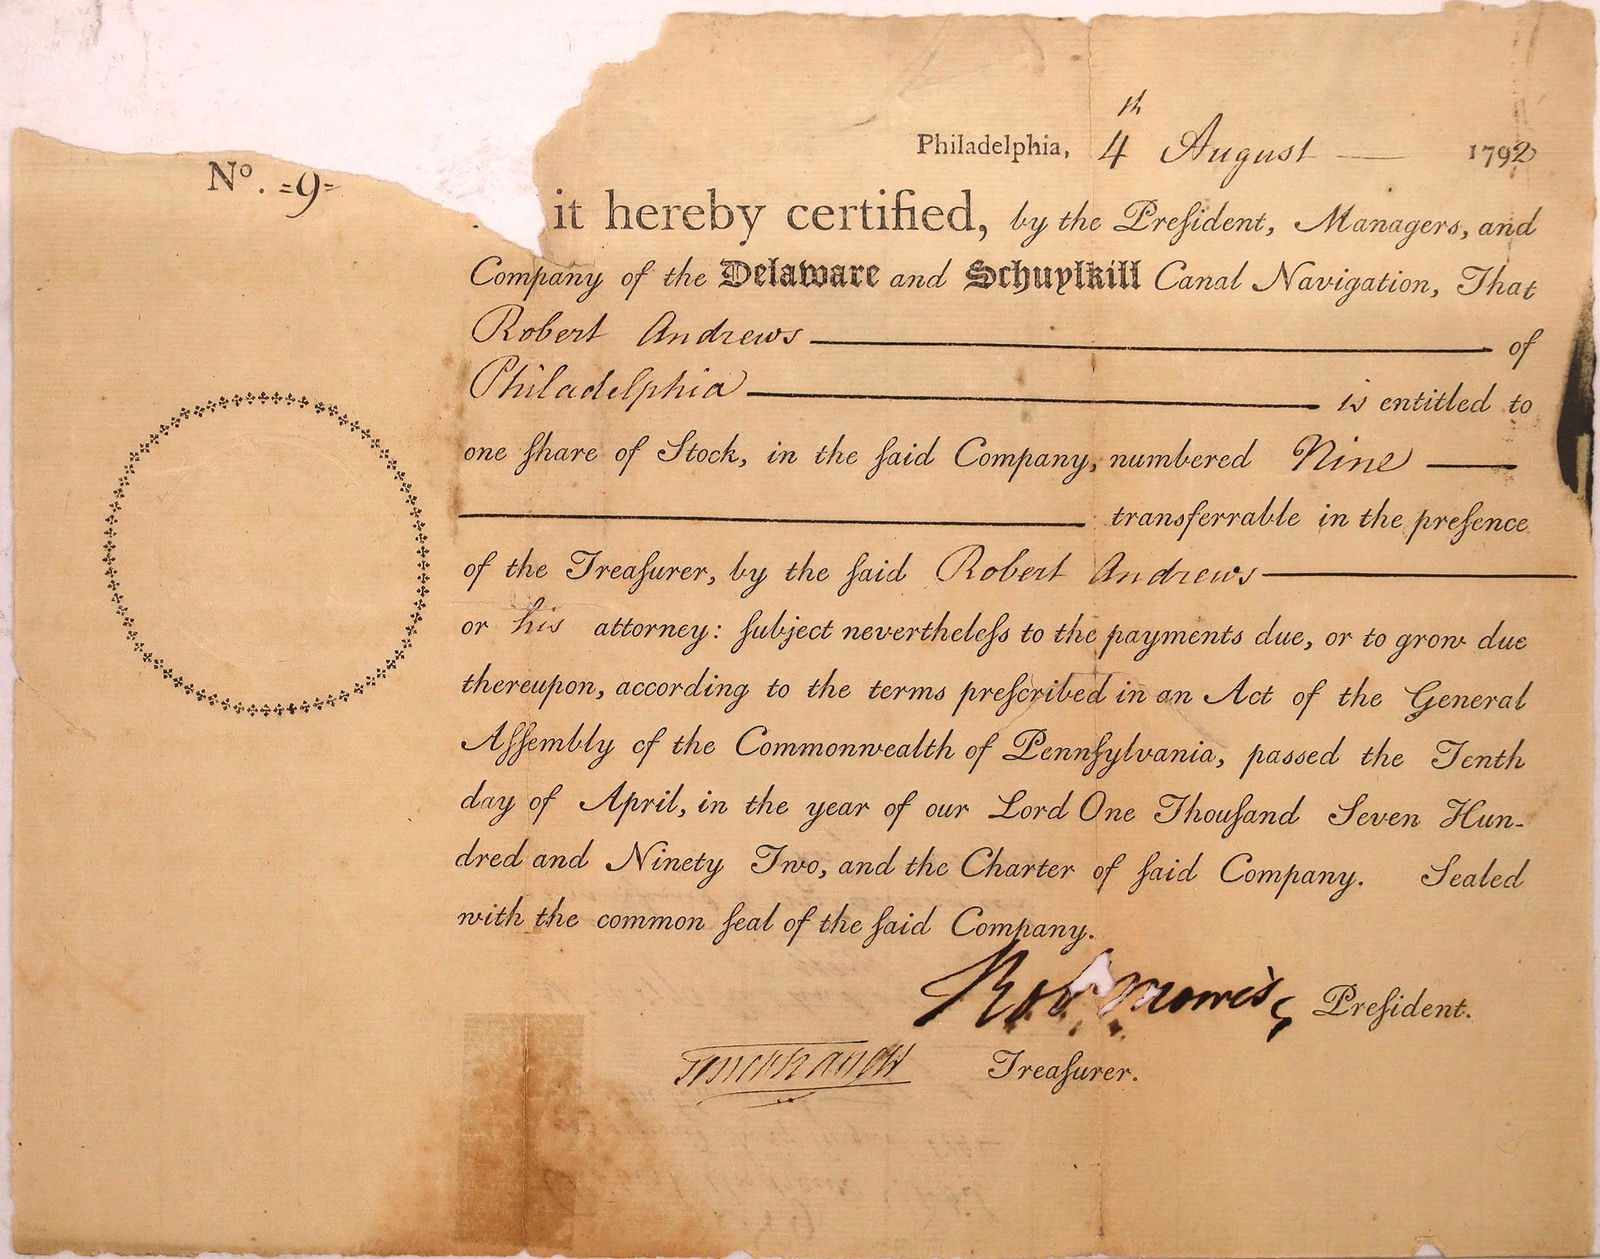 Philadelphia, 4th August 1792
No. =9=
it hereby certified, by the Preſident, Managers, and
Company of the Delaware and Schuylkill Canal Navigation, That
Robert Andrews of
Philadelphia is entitled to
one ſhare of Stock, in the ſaid Company, numbered Nine
transferrable in the preſence
of the Treaſurer, by the ſaid Robert Andrews
or his attorney: ſubject nevertheleſs to the payments due, or to grow due
thereupon, according to the terms preſcribed in an Act of the General
Aſſembly of the Commonwealth of Pennſylvania, passed the Tenth
day of April, in the year of our Lord One Thouſand Seven Hun-
dred and Ninety Two, and the Charter of ſaid Company. Sealed
with the common ſeal of the ſaid Company.
Rob Morris Preſident.
Treaſurer.